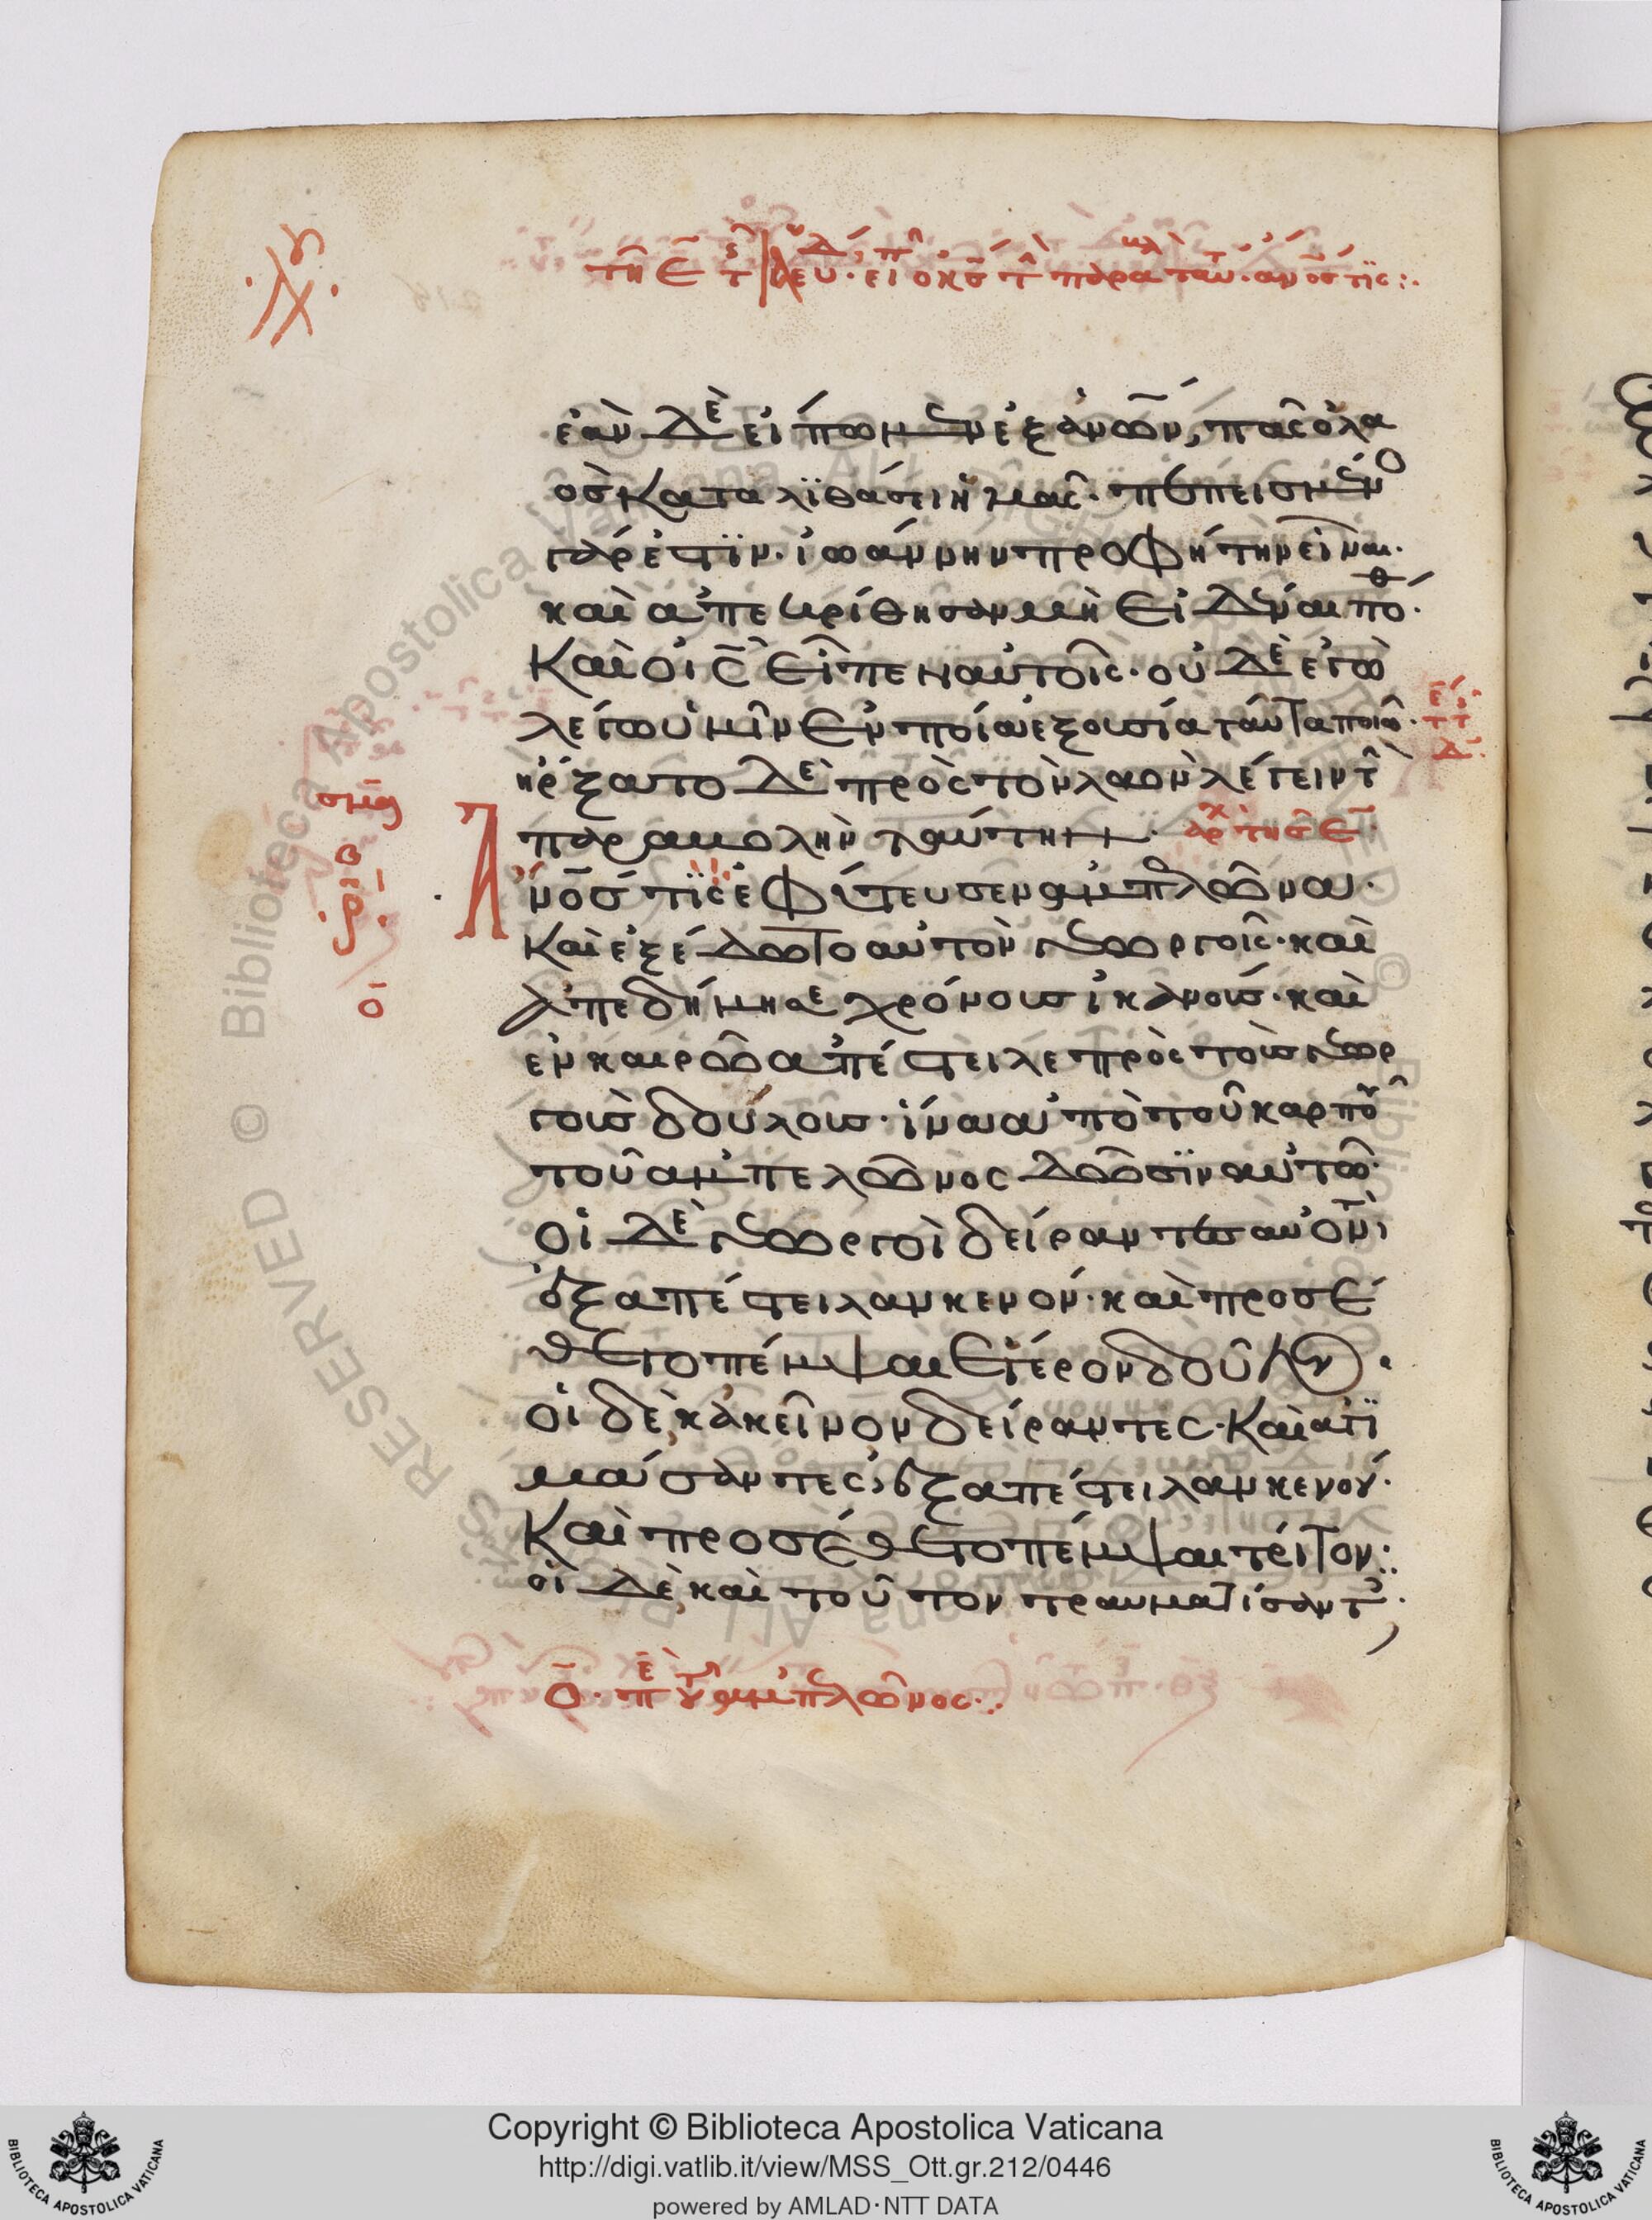 τῇ ε τ εν. εἶ ὁ κς τ παρα ταυ. ανος τις:
ἐὰν δὲ εἴπωμεν ἐξ ἀνων, πας ὁ λα
ὸς καταλιθάσει ἡμας. πεπεισμένο
γάρ ἐστιν. ἰωάννην προφήτην εἶναι.
καὶ ἀπεκρίθησαν μὴ εἰδέναι πό
Καὶ ὁ ις εἶπεν αὐτοῖς. οὐδὲ ἐγὼ
λέγω ὑμῖν ἐν ποία ἐξουσία ταῦτα ποιῶ.
ἤρξατο δὲ πρὸς τὸν λαὸν λέγειν τ
παραβολὴν ταύτην. αρχ της ε
Ἄνος τις ἐφύτευσεν ἀμπελῶνα.
Καὶ ἐξέδωτο αὐτὸν γεωργοῖς. καὶ
ἀπεδήμησε χρόνους ἱκανούς. καὶ
ἐν καιρῶ ἀπέστειλε πρὸς τοὺς γεωρ
γοὺς δούλους. ἵνα ἀπὸ τοῦ καρποῦ
τοῦ ἀμπελῶνος δῶσιν αὐτῶ.
οἱ δὲ γεωργοὶ δείραντες αὐτὸν,
ἐξαπέστειλαν κενόν. καὶ προσέ
θετο πέμψαι ἕτερον δοῦλον.
οἱ δὲ κἀκεῖνον δείραντες. Καὶ ἀτι
μάσαντες, ἐξαπέστειλαν κενόν.
Καὶ προσέθετο πέμψαι τρίτον:
οἱ δὲ, καὶ τοῦτον τραυματίσαντ
ο. π τ ἀμπελῶνος.
Copyright © Biblioteca Apostolica Vaticana
http://digi.vatlib.it/view/MSS_Ott.gr.212/0446
powered by AMLAD·NTT DATA
BIBLIOTECA APOSTOLICA VATICANA
BIBLIOTECA APOSTOLICA VATICANA